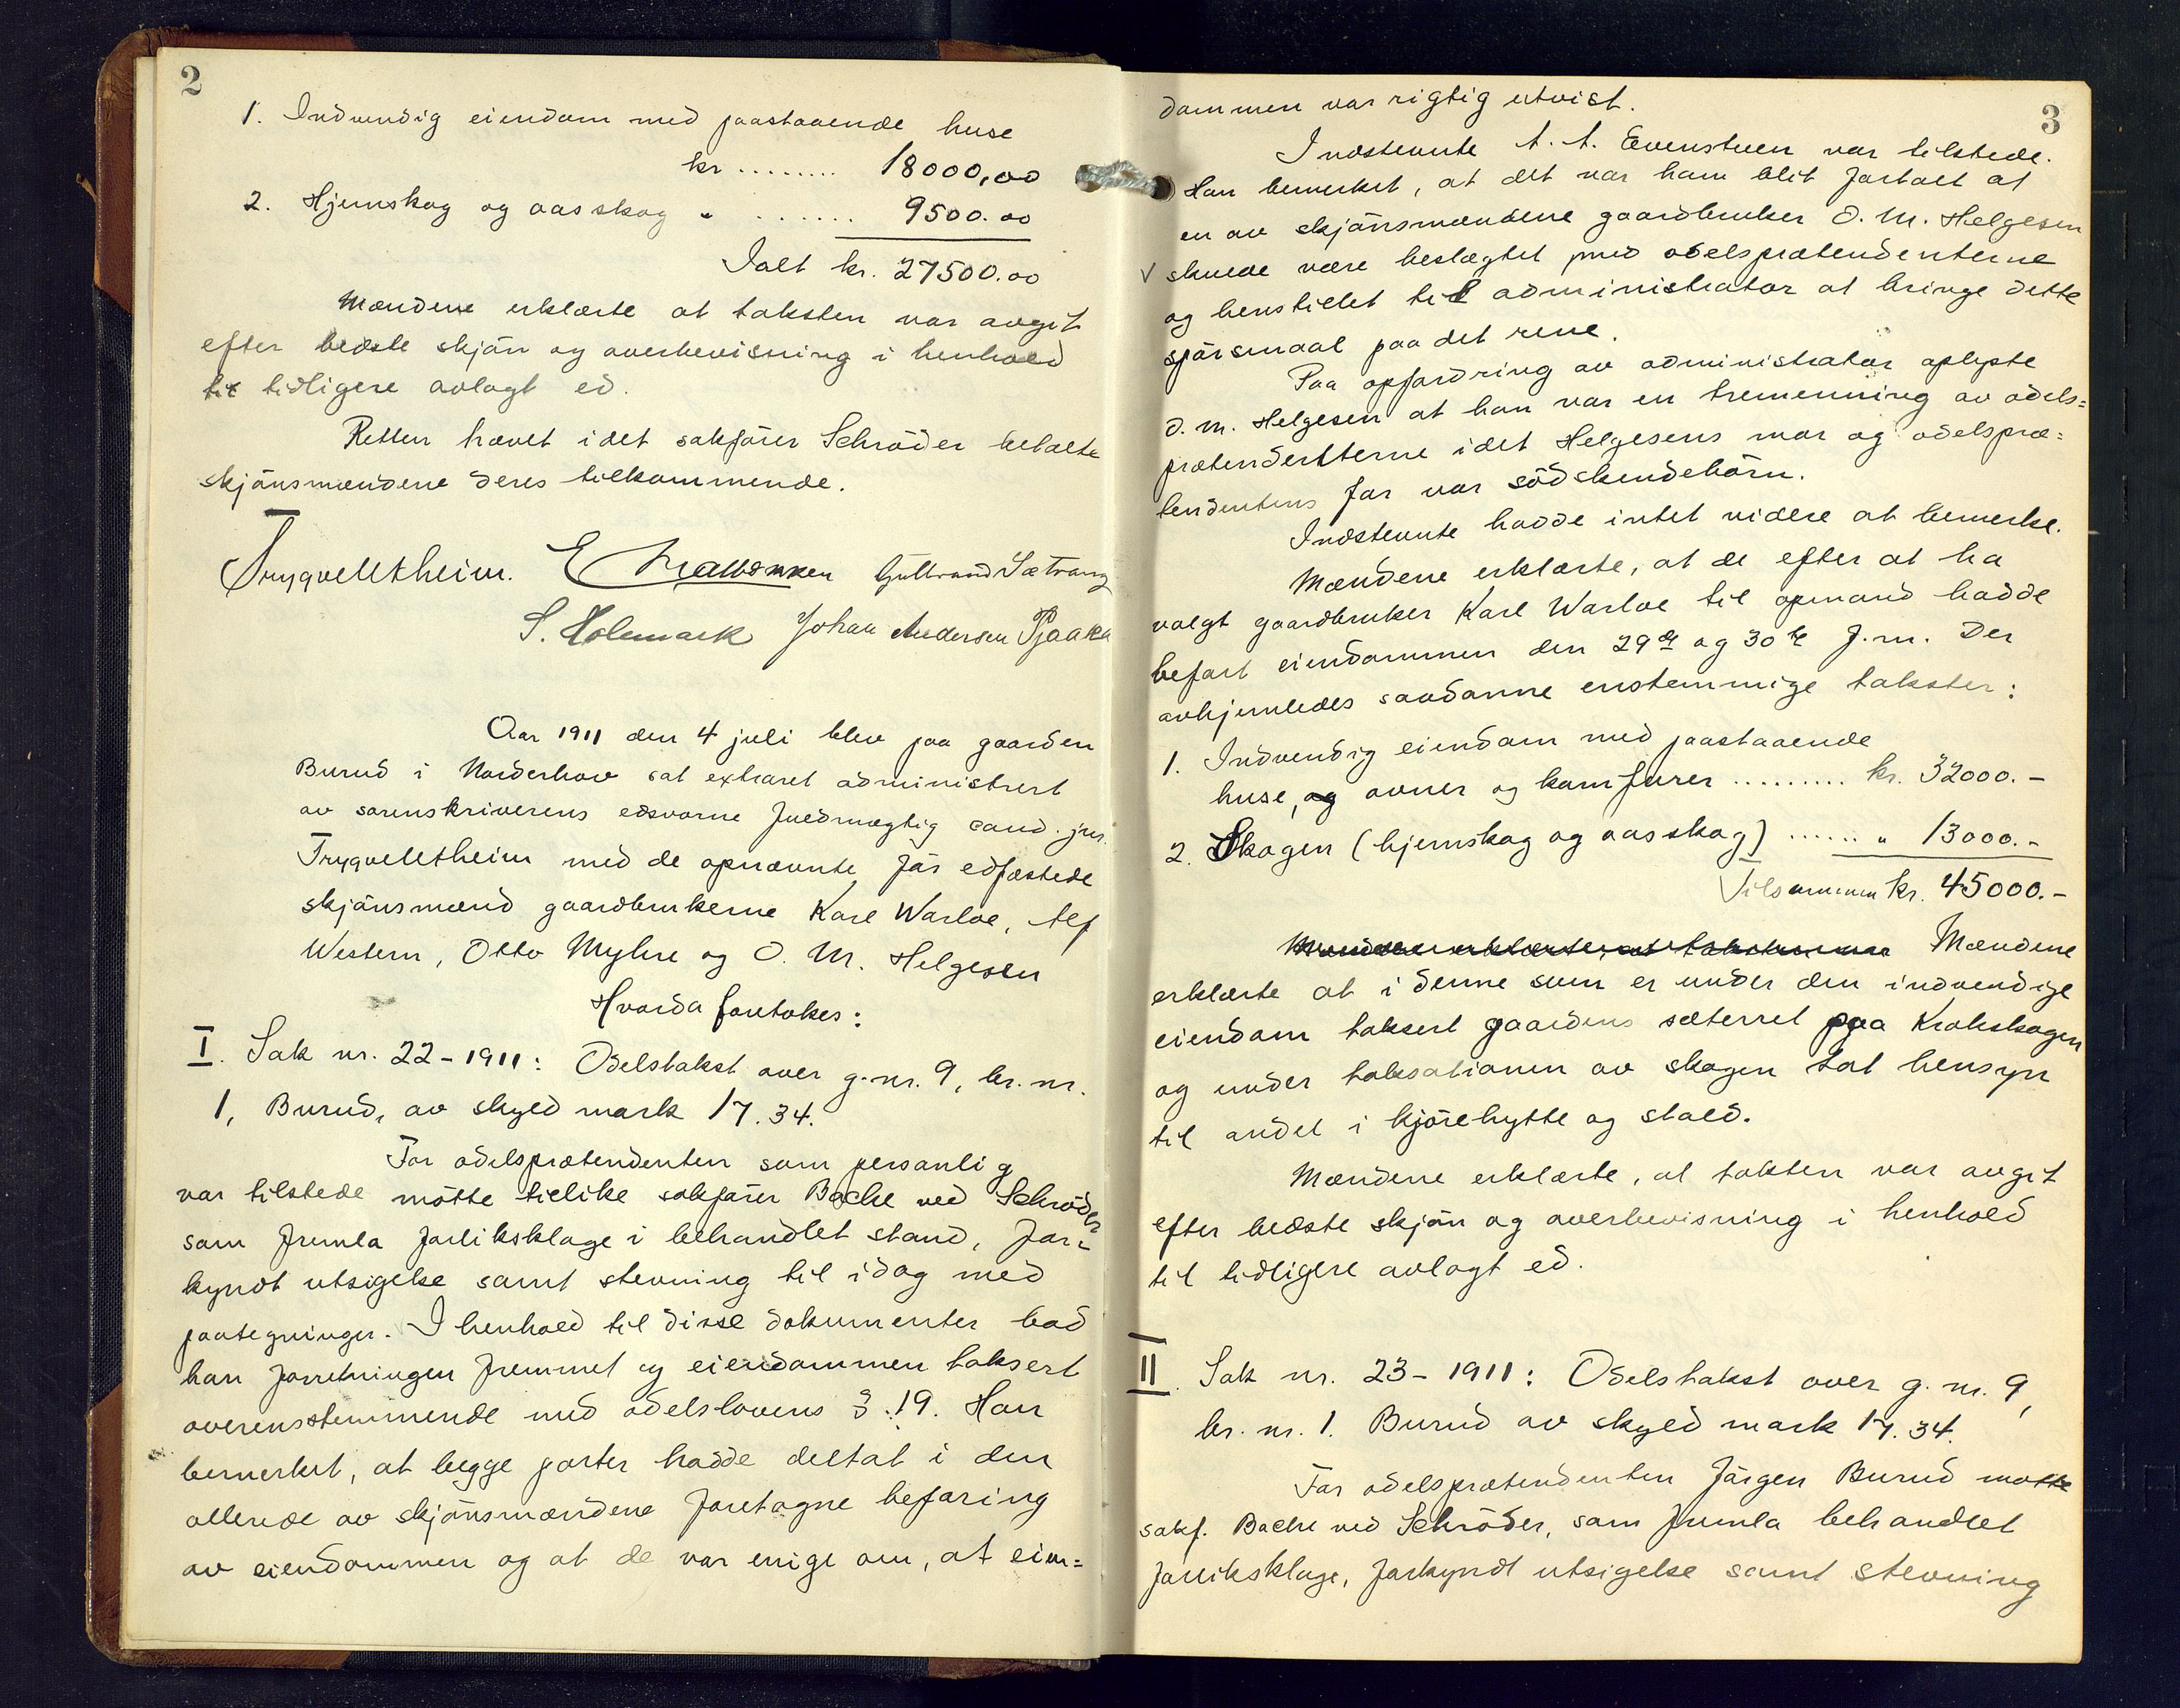 2
1. Indvendig eiendom med paastaaende huse
kr ........ 18000,00
2. Hjemskog og aasskog " ....... 9500.00
Ialt kr. 27500.00
Mændene erklærte at taksten var avgit
efter bedste skjøn og overbevisning i henhold
til tidligere avlagt ed.
Retten hævet idet sakfører Schrøder betalte
skjønsmændene deres tilkommende.
Trygve Utheim. E Gulbrand Sætrang
S. Holemark Johan Andersen Pjaaka
Aar 1911 den 4 juli blev paa gaarden
Burud i Norderhov sat extraret administrert
av sorenskriverens edsvorne fuldmægtig cand. jur.
Trygve Utheim med de opnævnte før edfæstede
skjønsmænd gaardbrukerne Karl Warloe, Alf
Western, Otto Myhre og O. M. Helgesen
Hvorda foretokes:
I. Sak nr. 22 - 1911: Odelstakst over g.nr. 9, br. nr.
1, Burud, av skyld mark 17.34.
For odelsprætendenten som personlig
var tilstede møtte tillike sakfører Bache ved Schrøder
som fremla forliksklage i behandlet stand, for-
kyndt utsigelse samt stevning til idag med
paategninger. I henhold til disse dokumenter bad
han forretningen fremmet og eiendommen taksert
overensstemmende med odelslovens § 19. Han
bemerket, at begge parter hadde deltat i den
allerede av skjønsmændene foretagne befaring
av eiendommen og at de var enige om, at eien=
3
dommen var rigtig utvist.
Indstevnte A. A. Evenstuen var tilstede.
Han bemerket, at det var ham blit fortalt at
en av skjønsmændene gaardbruker O. M. Helgesen
skulde være beslægtet med odelsprætendenterne
og henstillet til administrator at bringe dette
spørsmaal paa det rene.
Paa opfordring av administrator oplyste
O. M. Helgesen at han var en tremenning av odels=
prætendentterne idet Helgesens mor og odelspræ=
tendentens far var södskendebörn.
Indstevnte hadde intet videre at bemerke.
Mændene erklærte, at de efter at ha
valgt gaardbruker Karl Warloe til opmand hadde
befart eiendommen den 29de og 30te f.m. Der
avhjemledes saadanne enstemmige takster:
1. Indvendig eiendom med paastaaende
huse, og ovner og komfurer ......... kr. 32000.-
2. Skogen (hjemskog og aasskog) ...... " 13000.-
Tilsammen kr. 45000.-
Mændene erklærte, at taksten var Mændene
erklærte at i denne sum er under den indvendige
eiendom taksert gaardens sæterret paa Krokskogen
og under taksationen av skogen tat hensyn
til andel i kjörehytte og stald.
Mændene erklærte, at taksten var avgit
efter bedste skjøn og overbevisning i henhold
til tidligere avlagt ed.
II. Sak nr. 23 - 1911: Odelstakst over g. nr. 9,
br. nr. 1. Burud av skyld mark 17.34.
For odelsprætendenten Jörgen Burud møtte
sakf. Bache ved Schrøder, som fremla behandlet
forliksklage, forkyndt utsigelse samt stevning